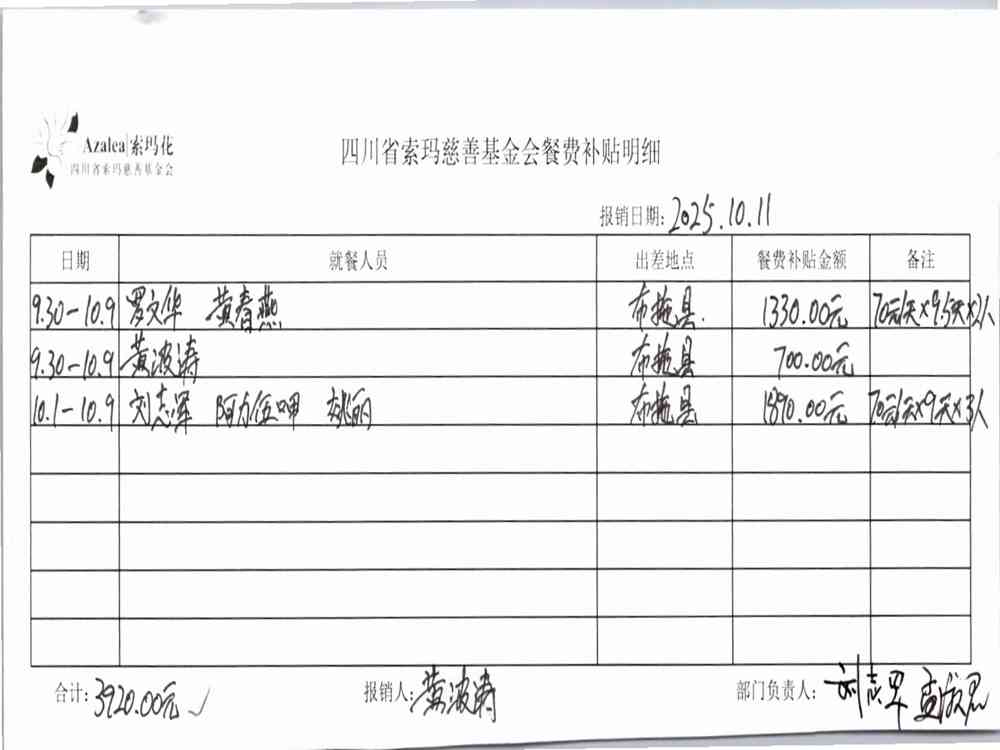 Azalea|索玛花
四川省索玛慈善基金会
四川省索玛慈善基金会餐费补贴明细
报销日期: 2025.10.11
日期 就餐人员 出差地点 餐费补贴金额 备注
9.30-10.9 罗文华 黄春燕 布拖县. 1330.00元 70元/天×9.5天×2人
9.30-10.9 黄波涛 布拖县 700.00元
10.1-10.9 刘志军 阿力伍呷 姚丽 布拖县 1890.00元 70元/天×9天×3人
合计: 3920.00元 ✓ 报销人: 黄波涛 部门负责人: 刘志军